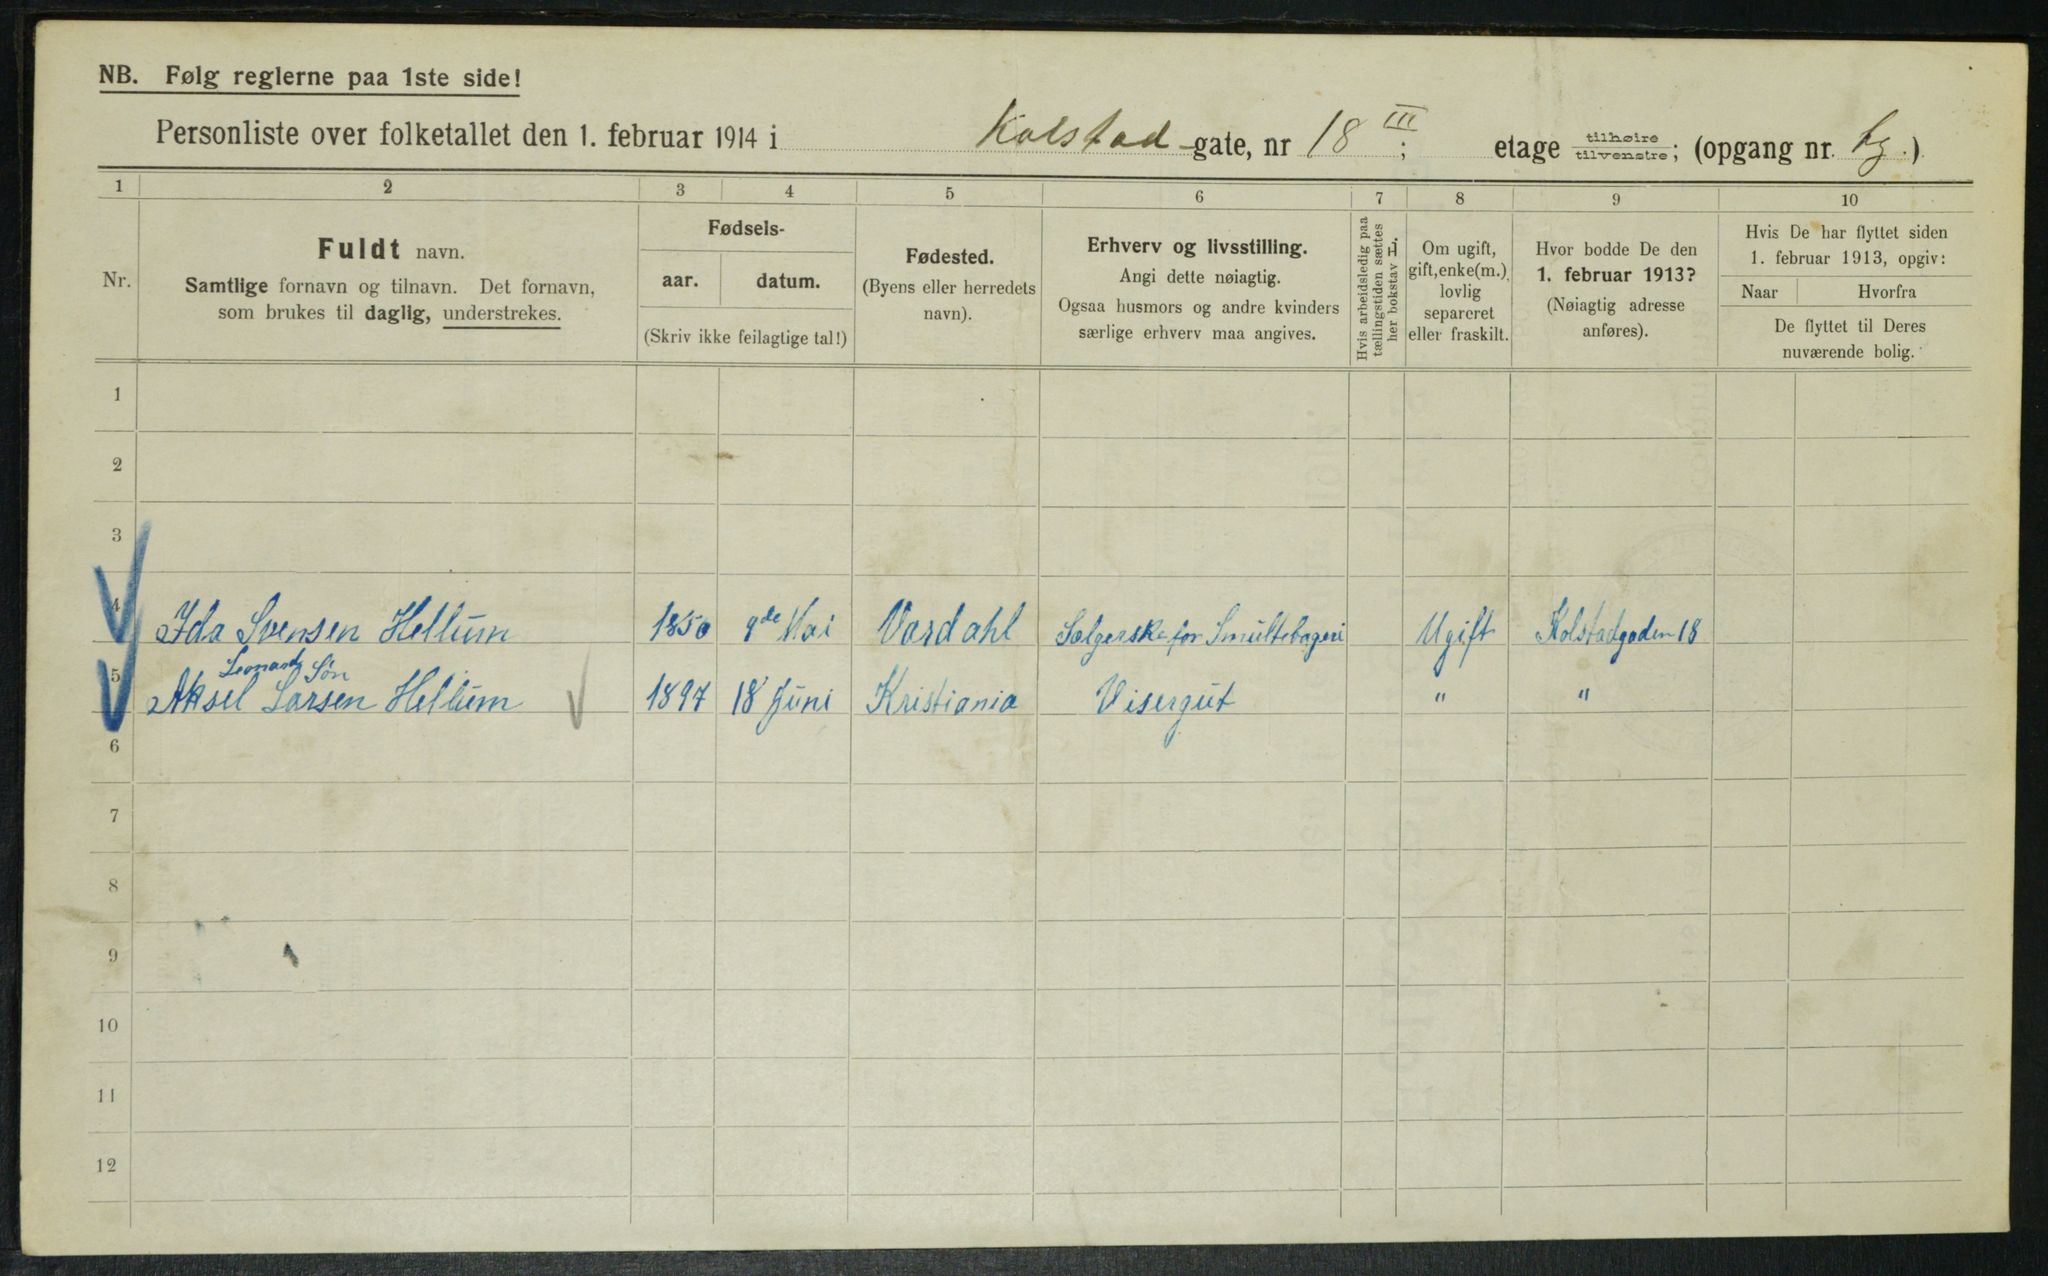 NB. Følg reglerne paa 1ste side!
Personliste over folketallet den 1. februar 1914 i Kolstad-gate, nr 18 III; etage tilhøire/tilvenstre; (opgang nr. .)
1 2 3 4 5 6 7 8 9 10
Nr.
Fuldt navn.
Samtlige fornavn og tilnavn. Det fornavn,
som brukes til daglig, understrekes.
Fødsels-
aar. datum.
(Skriv ikke feilagtige tal!)
Fødested.
(Byens eller herredets
navn).
Erhverv og livsstilling.
Angi dette nøiagtig.
Ogsaa husmors og andre kvinders
særlige erhverv maa angives.
Hvis arbeidsledig paa
tællingstiden sættes
her bokstav L.
Om ugift,
gift, enke(m.),
lovlig
separeret
eller fraskilt.
Hvor bodde De den
1. februar 1913?
(Nøiagtig adresse
anføres).
Hvis De har flyttet siden
1. februar 1913, opgiv:
Naar Hvorfra
De flyttet til Deres
nuværende bolig.
1
2
3
4 Ida Svensen Hellum 1850 9de Mai Vardahl Sælgerske for Smultebageri Ugift Kolstadgaden 18
Leonard Søn
5 Aksel Larsen Hellum 1897 18 Juni Kristiania Visergut " "
6
7
8
9
10
11
12